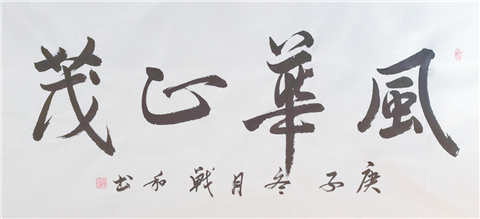 風華正茂
庚子冬月戰和书